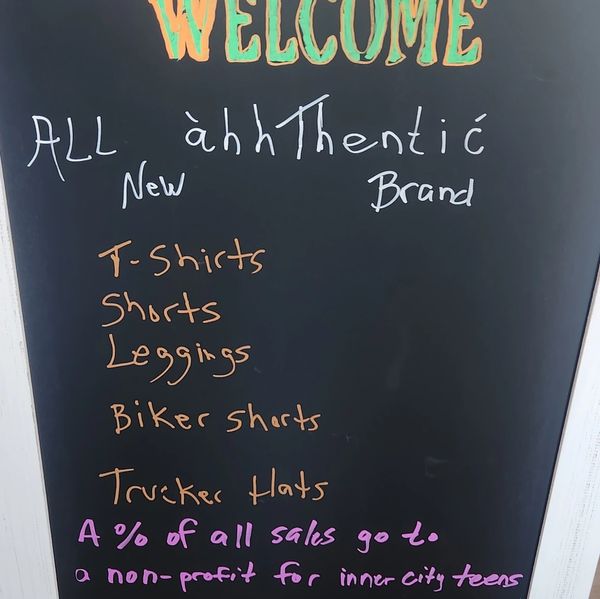 WELCOME
ALL àhhThentić
New Brand
T-Shirts
Shorts
Leggings
Biker shorts
Trucker Hats
A % of all sales go to
a non-profit for inner city teens